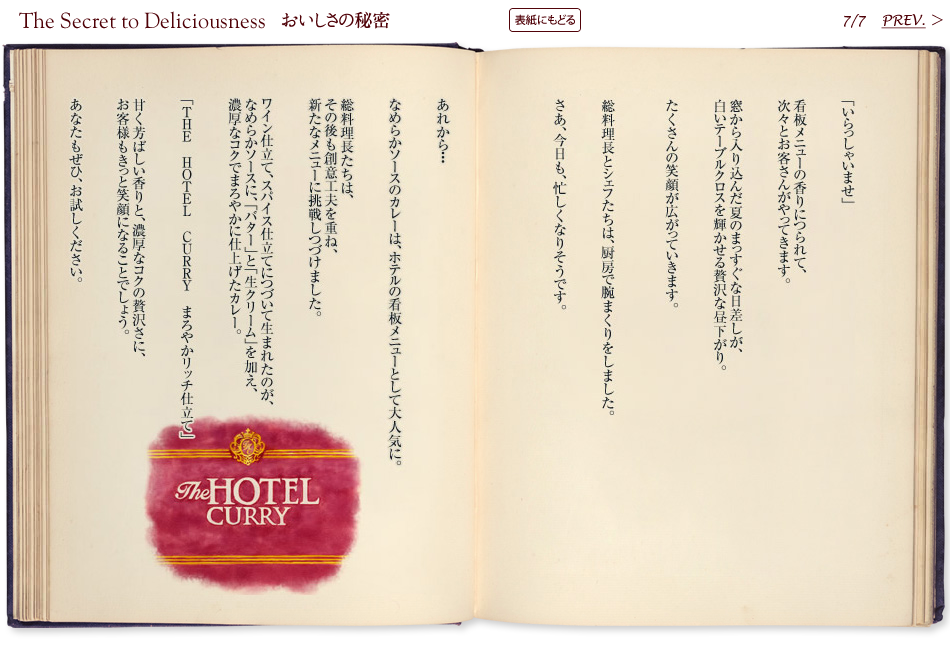 The Secret to Deliciousness おいしさの秘密
表紙にもどる
7/7 PREV. >
「いらっしゃいませ」
看板メニューの香りにつられて、
次々とお客さんがやってきます。
窓から入り込んだ夏のまっすぐな日差しが、
白いテーブルクロスを輝かせる贅沢な昼下がり。
たくさんの笑顔が広がっていきます。
総料理長とシェフたちは、厨房で腕まくりをしました。
さあ、今日も、忙しくなりそうです。
あれから…
なめらかソースのカレーは、ホテルの看板メニューとして大人気に。
総料理長たちは、
その後も創意工夫を重ね、
新たなメニューに挑戦しつづけました。
ワイン仕立て、スパイス仕立てにつづいて生まれたのが、
なめらかソースに、「バター」と「生クリーム」を加え、
濃厚なコクでまろやかに仕上げたカレー。
「THE HOTEL CURRY まろやかリッチ仕立て」
甘く芳ばしい香りと、濃厚なコクの贅沢さに、
お客様もきっと笑顔になることでしょう。
あなたもぜひ、お試しください。
The HOTEL
CURRY